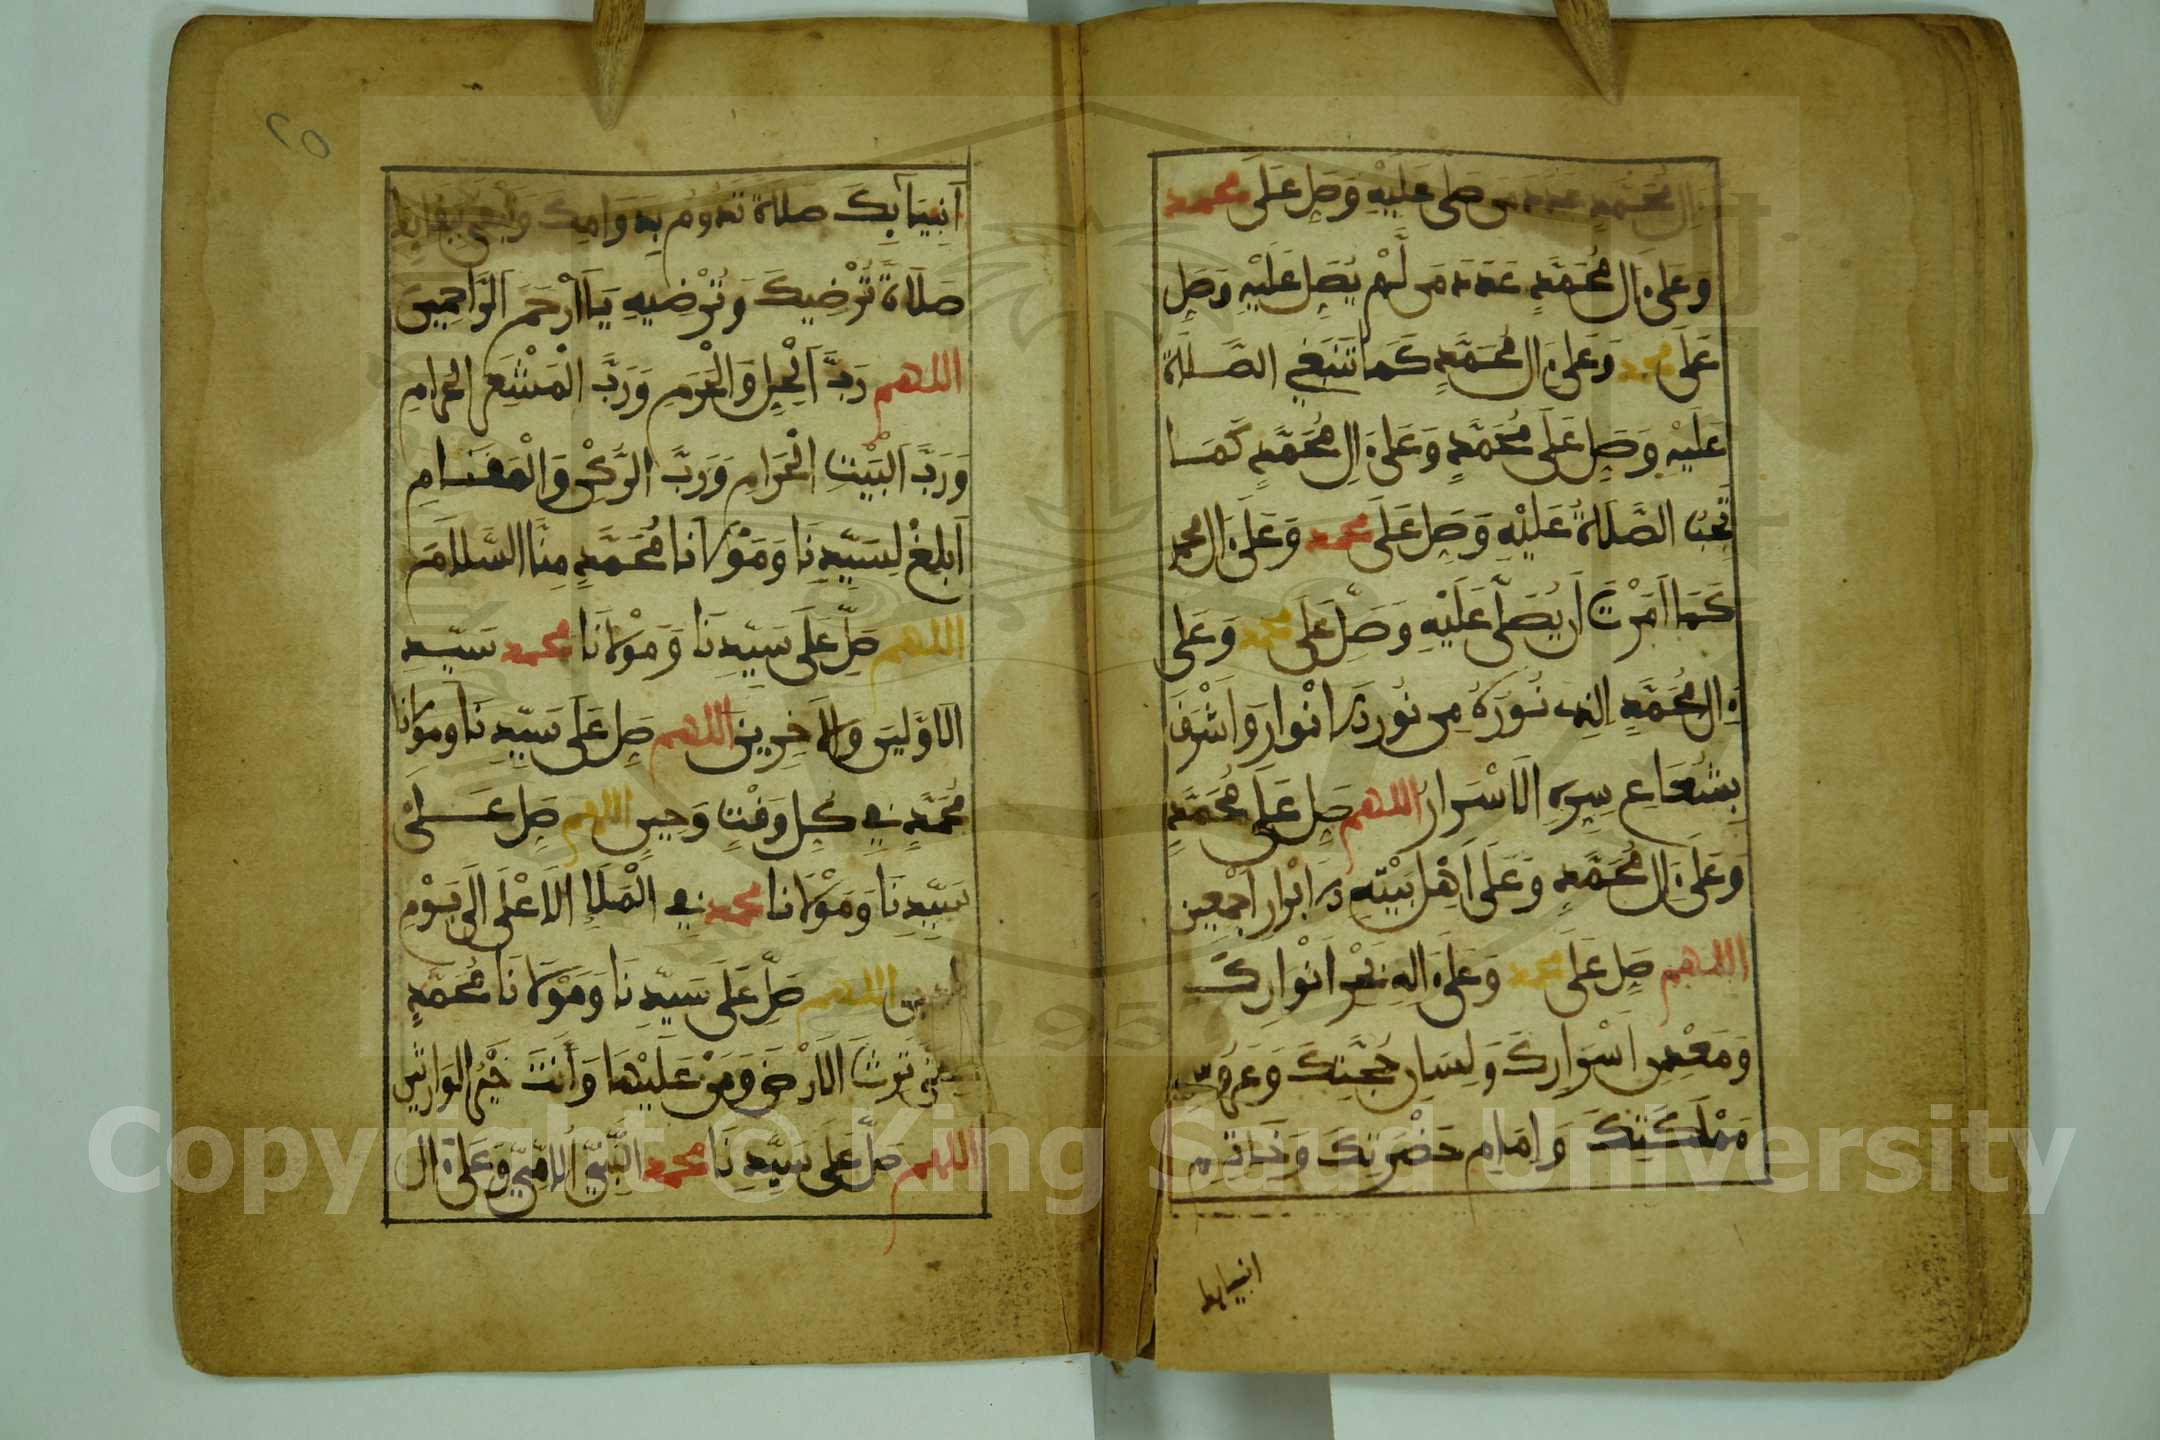 ءال محمد عدد من صلى عليه وصل على محمد
وعلى ءال محمد عدد من لم يصل عليه وصل
على محمد وعلى ءال محمد كما تنبغي الصلاة
عليه وصل على محمد وعلى ءال محمد كما
تجب الصلاة عليه وصل على محمد وعلى ءال محمد
كما امرت ان يصلى عليه وصل على محمد وعلى
ءال محمد الذي نوره من نور الانوار واشرق
بشعاع سره الاسرار اللهم صل على محمد
وعلى ءال محمد وعلى اهل بيته الابرار اجمعين
اللهم صل على محمد وعلى ءاله بحر انوارك
ومعدن اسرارك ولسان حجتك وعروس
مملكتك وامام حضرتك وخاتم
انبيايك
٢٥
انبيايك صلاة تدوم بدوامك وتبقى ببقايك
صلاة ترضيك وترضيه يا ارحم الراحمين
اللهم رب الحل والحرم ورب المشعر الحرام
ورب البيت الحرام ورب الركن والمقام
ابلغ لسيدنا ومولانا محمد منا السلام
اللهم صل على سيدنا ومولانا محمد سيد
الاولين والاخرين اللهم صل على سيدنا ومولانا
محمد في كل وقت وحين اللهم صل على
سيدنا ومولانا محمد في الملإ الاعلى الى يوم
الدين اللهم صل على سيدنا ومولانا محمد
حتى ترث الارض ومن عليها وأنت خير الوارثين
اللهم صل على سيدنا محمد النبي الامي وعلى ءال
Copyright © King Saud University
1957